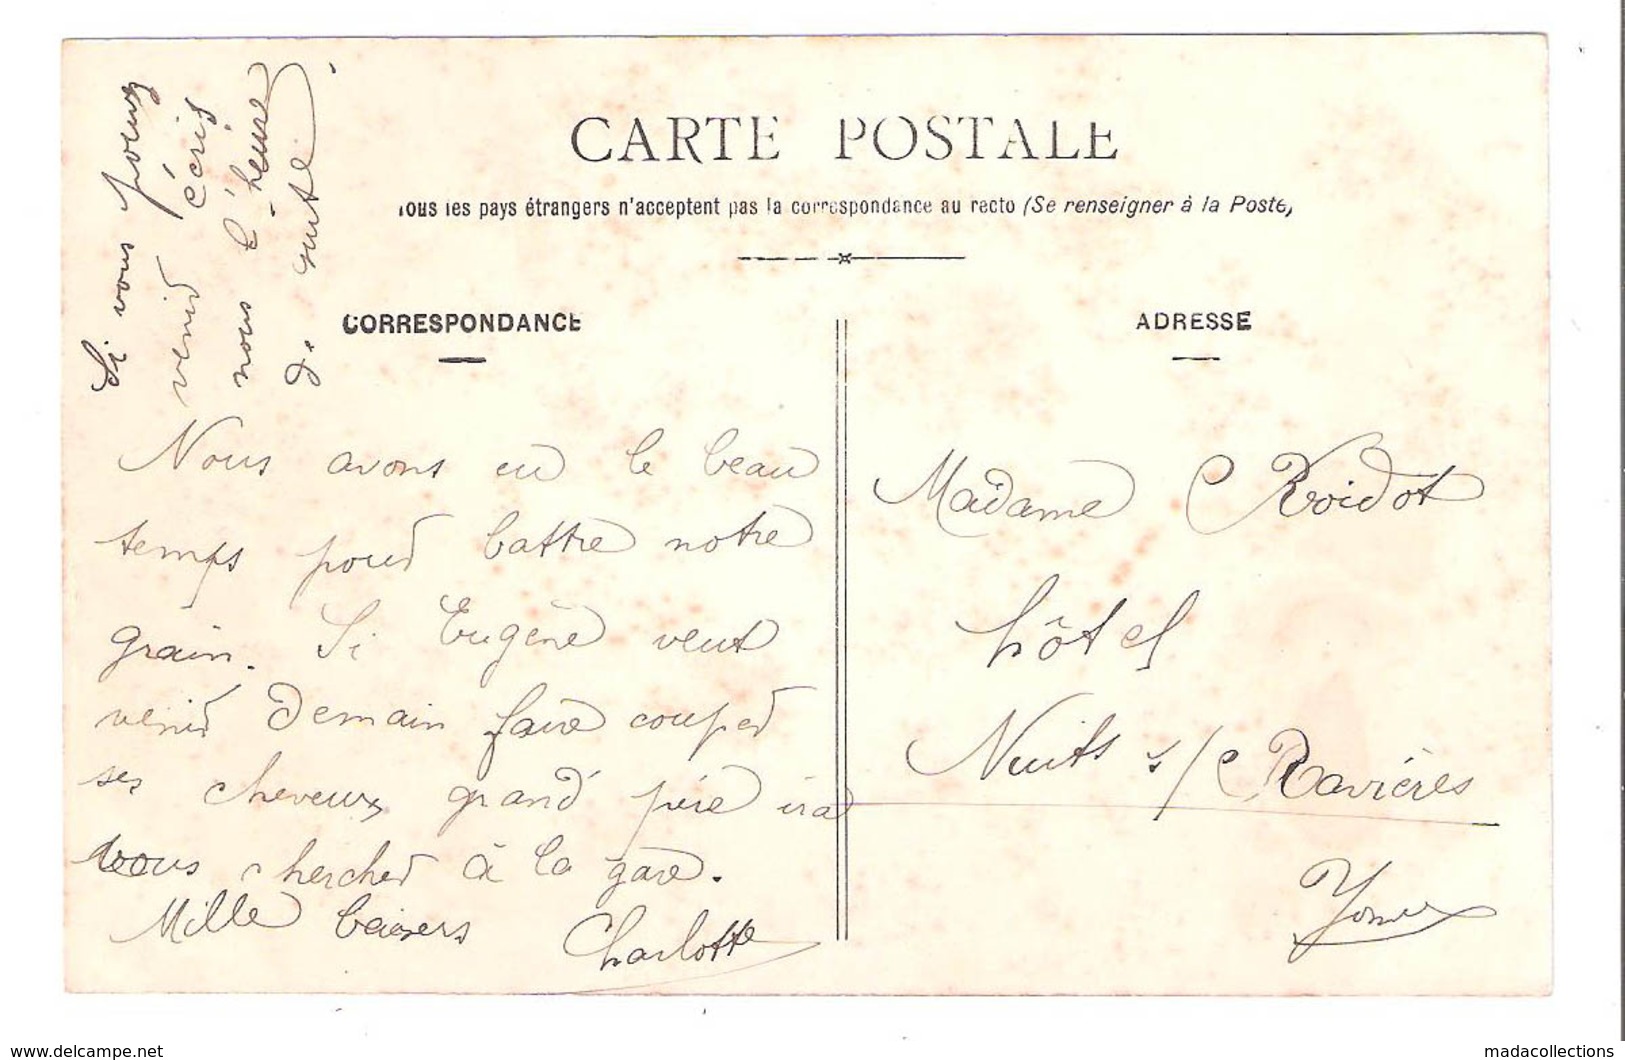 CARTE POSTALE
Tous les pays étrangers n'acceptent pas la correspondance au recto (Se renseigner à la Poste)
CORRESPONDANCE
ADRESSE
Si vous pouvez
venir écris
nous l'heure
d. suite.
Nous avons eu le beau
temps pour battre notre
grain. Si Eugène veut
venir demain faire couper
ses cheveux grand père ira
vous chercher à la gare.
Mille baisers Charlotte
Madame Roidot
hôtel
Nuits s/ Ravières
Yonne
delcampe.net
madacollections